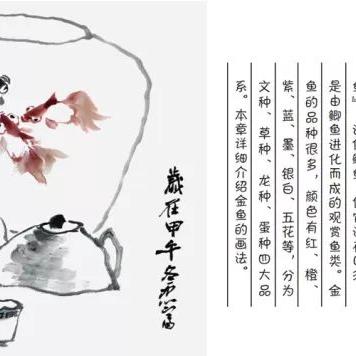 是由鲫鱼进化而成的观赏鱼类。金
鱼的品种很多，颜色有红、橙、
紫、蓝、墨、银白、五花等，分为
文种、草种、龙种、蛋种四大品
系。本章详细介绍金鱼的画法。
歲在甲午冬